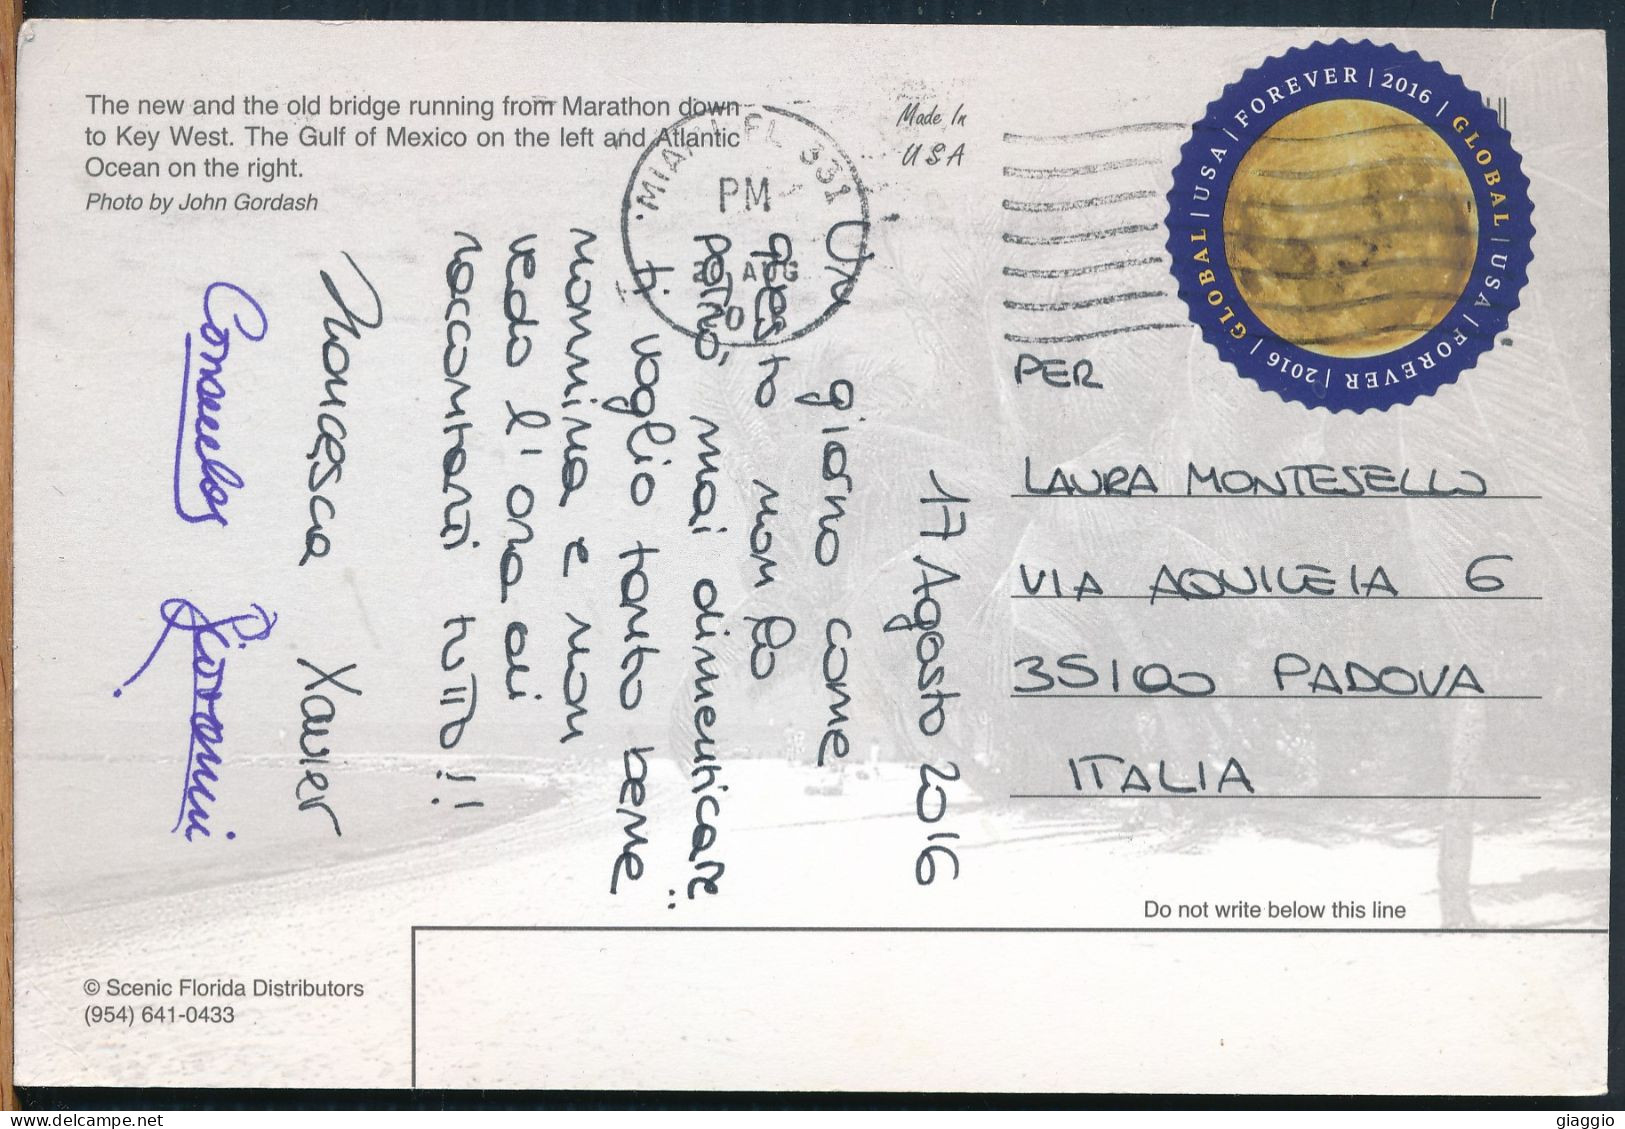 The new and the old bridge running from Marathon down
to Key West. The Gulf of Mexico on the left and Atlantic
Ocean on the right.
Photo by John Gordash
Made In
USA
MIAMI FL 331
PM
AUG
GLOBAL | USA | FOREVER | 2016 | GLOBAL | USA | FOREVER | 2016 |
17 Agosto 2016
Un giorno come
questo non lo
potrò mai dimenticare..
ti voglio tanto bene
nonnina e non
vedo l'ora di
raccontarti tutto!!
Francesca Xavier
Consuelo Giovanni
PER
LAURA MONTESELLO
VIA AQUILEIA 6
35100 PADOVA
ITALIA
Do not write below this line
© Scenic Florida Distributors
(954) 641-0433
giaggio